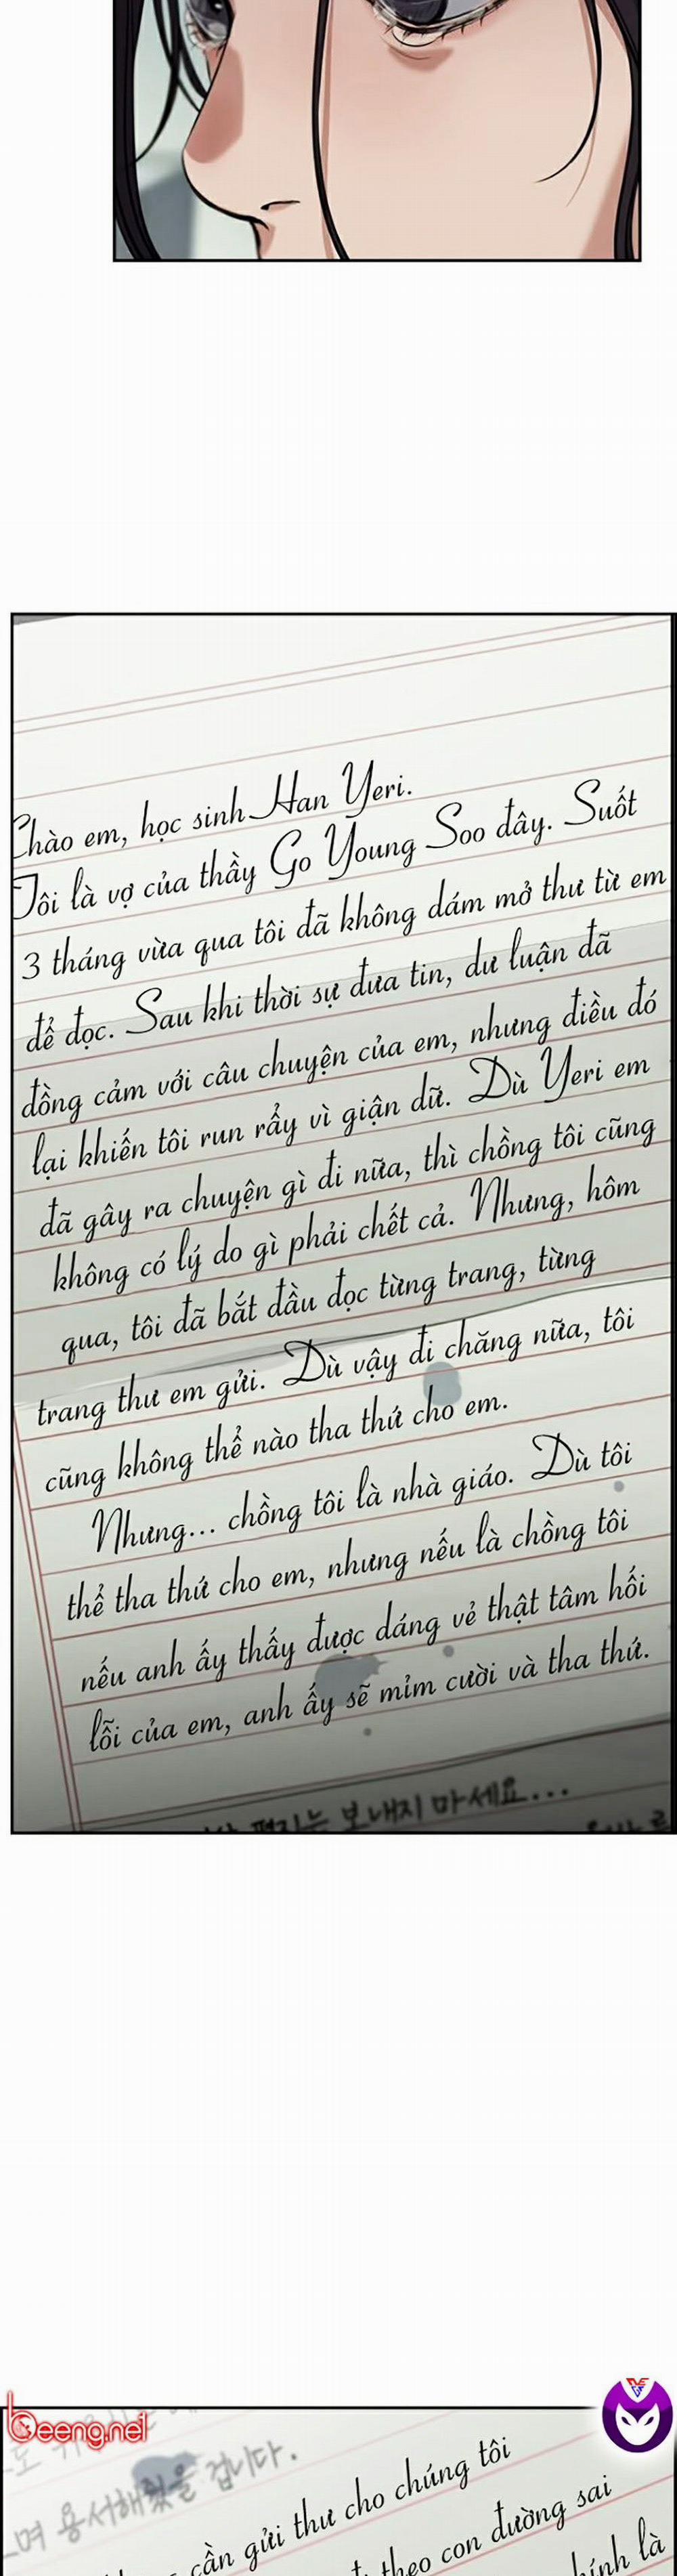 Chào em, học sinh Han Yeri.
Tôi là vợ của thầy Go Young Soo đây. Suốt
3 tháng vừa qua tôi đã không dám mở thư từ em
để đọc. Sau khi thời sự đưa tin, dư luận đã
đồng cảm với câu chuyện của em, nhưng điều đó
lại khiến tôi run rẩy vì giận dữ. Dù Yeri em
đã gây ra chuyện gì đi nữa, thì chồng tôi cũng
không có lý do gì phải chết cả. Nhưng, hôm
qua, tôi đã bắt đầu đọc từng trang, từng
trang thư em gửi. Dù vậy đi chăng nữa, tôi
cũng không thể nào tha thứ cho em.
Nhưng... chồng tôi là nhà giáo. Dù tôi
thể tha thứ cho em, nhưng nếu là chồng tôi
nếu anh ấy thấy được dáng vẻ thật tâm hối
lỗi của em, anh ấy sẽ mỉm cười và tha thứ.
편지는 보내지 마세요...
beeng.net
며 용서해줬을 겁니다.
cần gửi thư cho chúng tôi
theo con đường sai
là